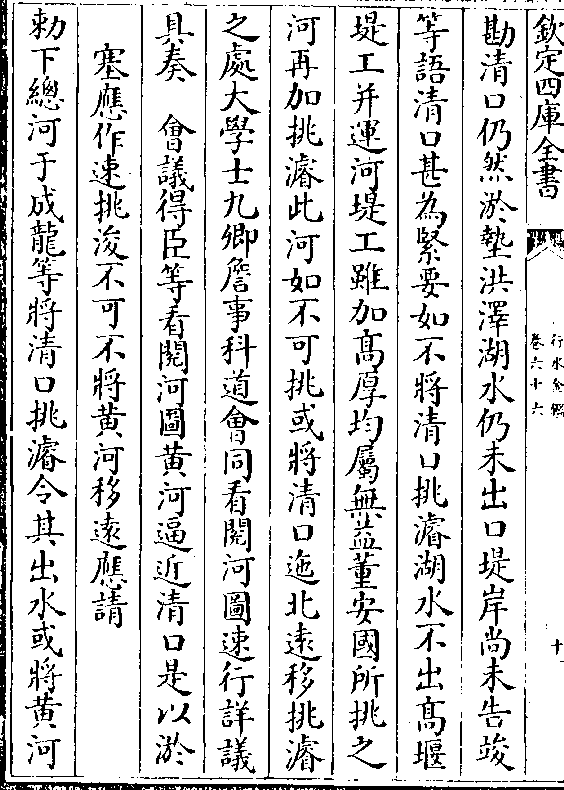 欽定四庫全書
行水金鑑
卷六十六
十
勘清口仍然淤墊洪澤湖水仍未出口堤岸尚未告竣
等語清口甚為緊要如不將清口挑濬湖水不出髙堰
堤工并運河堤工雖加髙厚均屬無益董安國所挑之
河再加挑濬此河如不可挑或將清口迤北遠移挑濬
之處大學士九卿詹事科道會同看閱河圖速行詳議
具奏　會議得臣等看閱河圖黄河逼近清口是以淤
塞應作速挑浚不可不將黄河移遠應請
勅下總河于成龍等將清口挑濬令其出水或將黄河